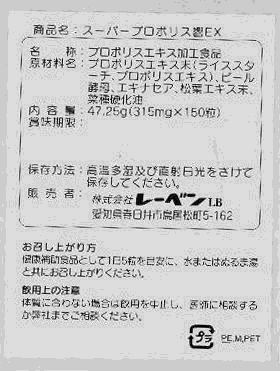 商品名：スーパープロポリス響EX
名　　称：プロポリスエキス加工食品
原材料名：プロポリスエキス末(ライススタ
ーチ、プロポリスエキス)、ビール
酵母、エキナセア、松葉エキス末、
菜種硬化油
内 容 量：47.25g(315mg×150粒)
賞味期限：
保存方法：高温多湿及び直射日光をさけて
保存してください。
販 売 者：株式会社レーベンLB
愛知県春日井市鳥居松町5-162
お召し上がり方
健康補助食品として1日5粒を目安に、水またはぬるま湯
と共にお召し上がりください。
飲用上の注意
体質に合わない場合は飲用を中止し、医師に相談する
か弊社までご相談ください。
プラ PE.M,PET